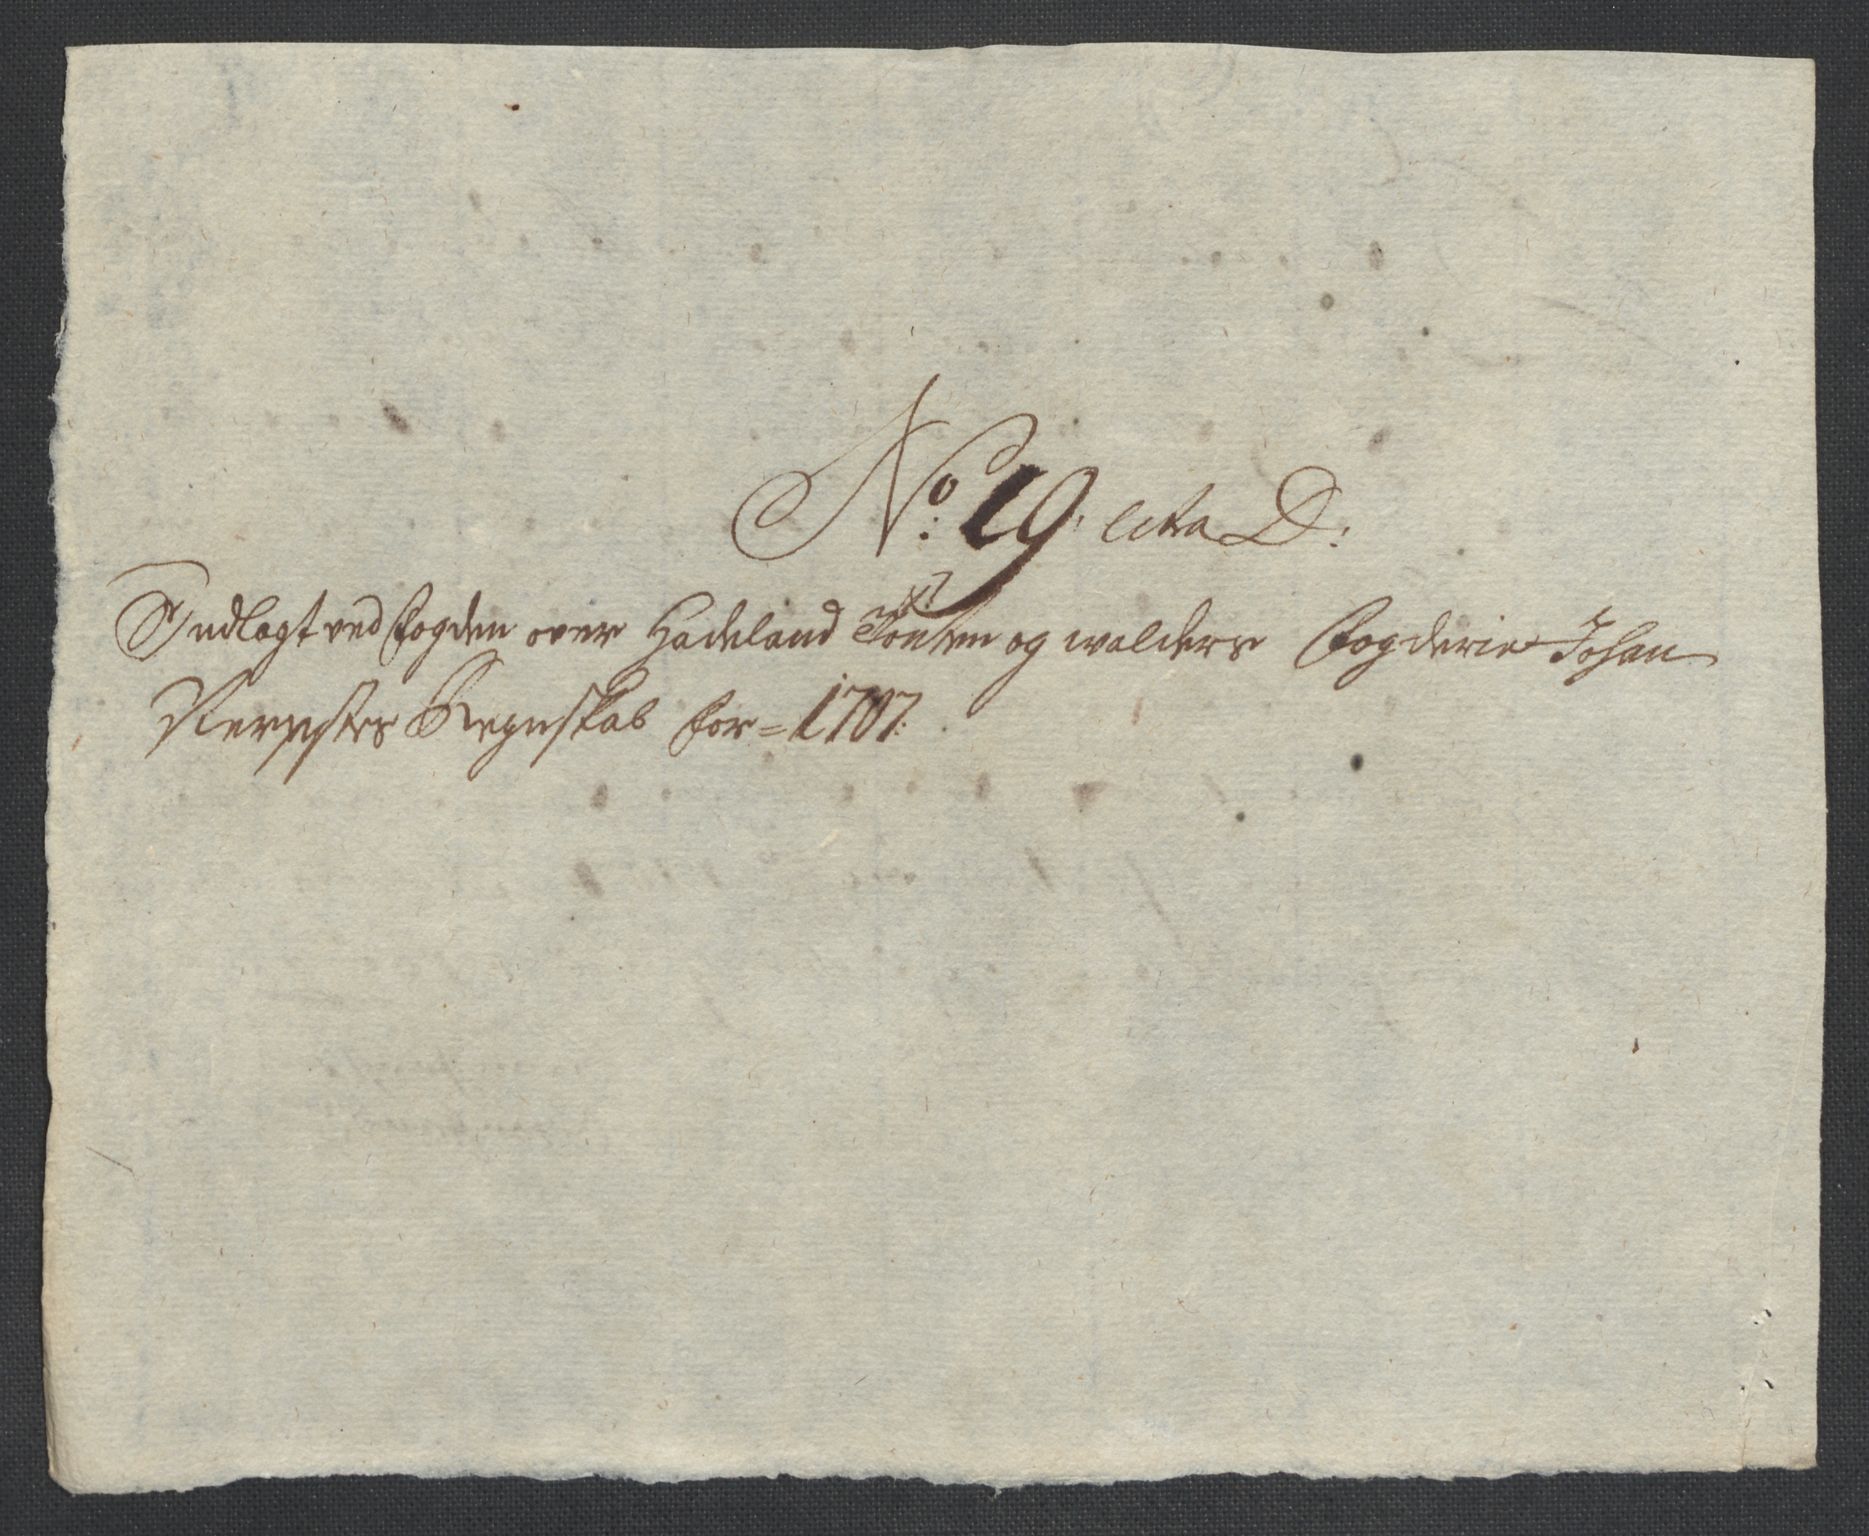 No: 19: litra D:
Indlagt ved fogden over Hadeland Toten og walders fogderie Johan
Regnskab for = 1707: